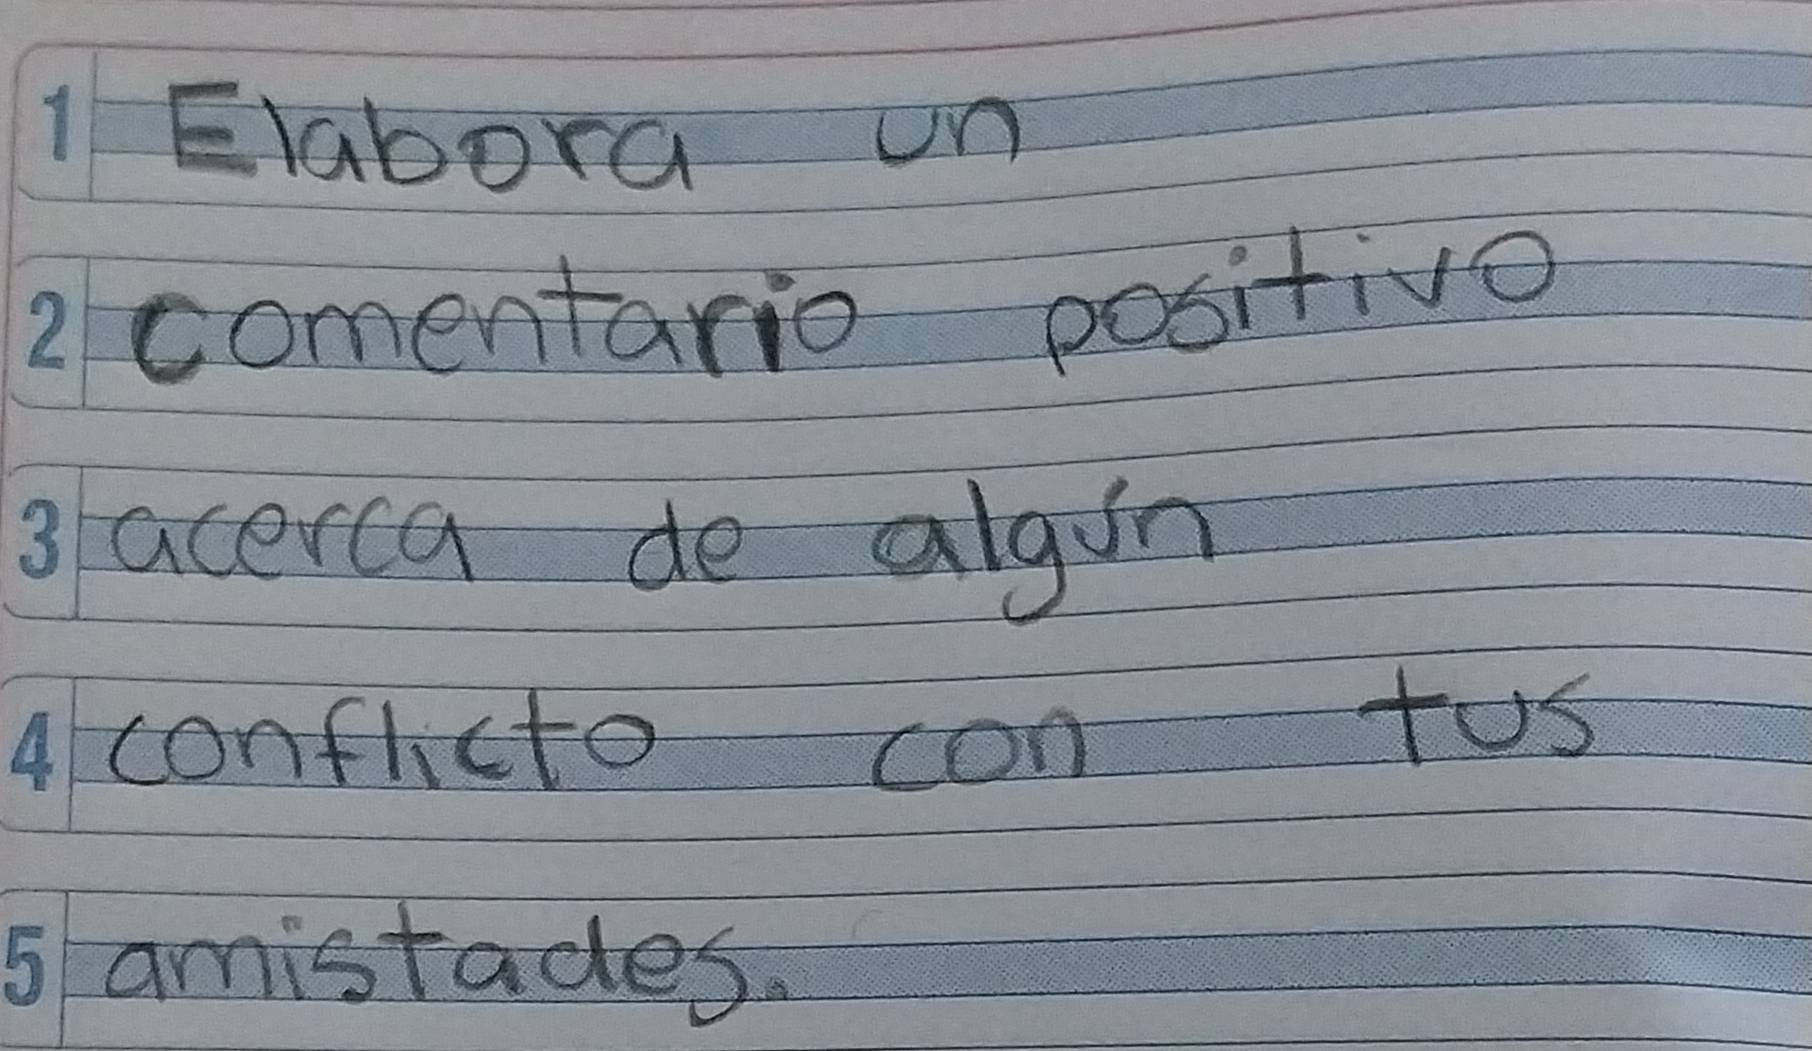 1 Elabora un
2 comentario positivo
3 acerca de algún
4 conflicto con tus
5 amistades.